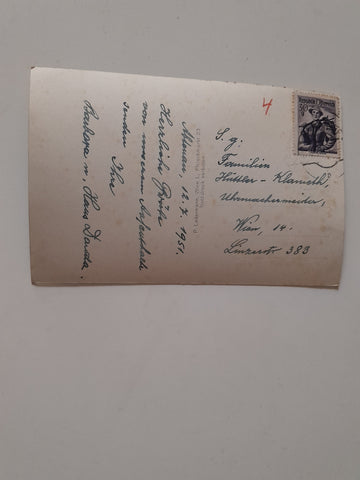 Almau, 12.7.1951.
Herrliche Grüße
von unserem Aufenthalt
senden Ihre
Barbara u. Hans Danda.
4
S. g.
Familien
Hüttler - Klameth,
Uhrmachermeister,
Wien, 14.
Linzerstr 383
REPUBLIK ÖSTERREICH